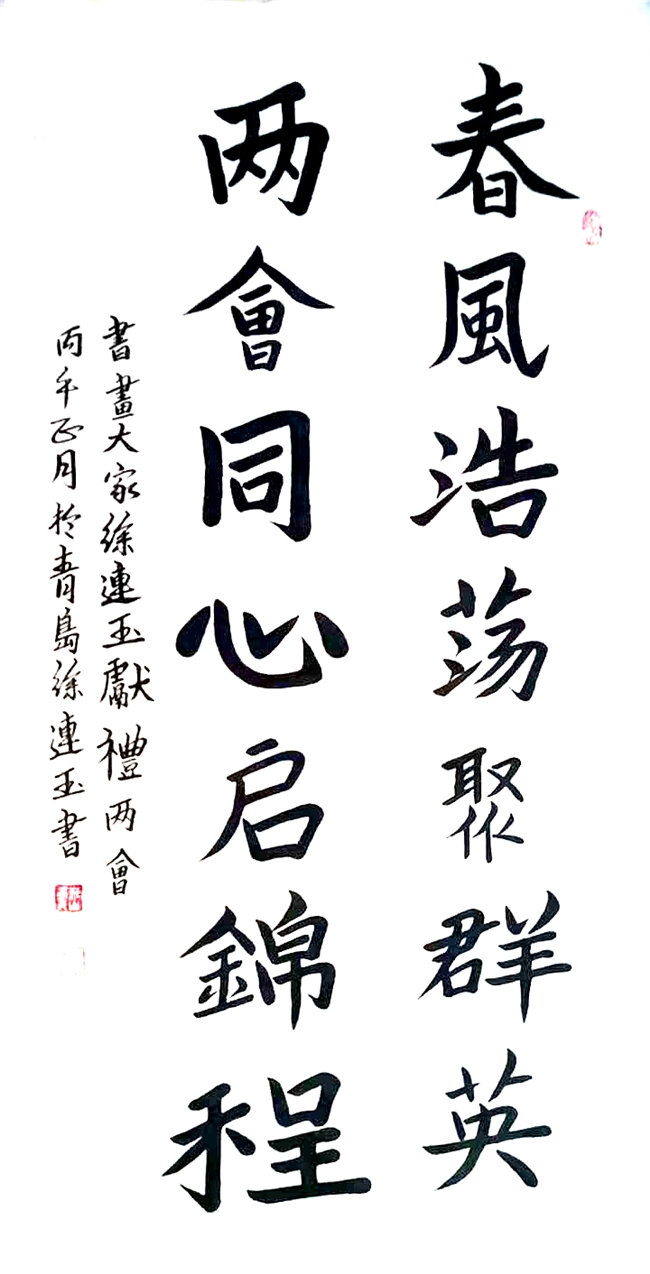 春風浩荡聚群英
两會同心启錦程
書畫大家徐連玉獻禮两會
丙午正月於青島徐連玉書